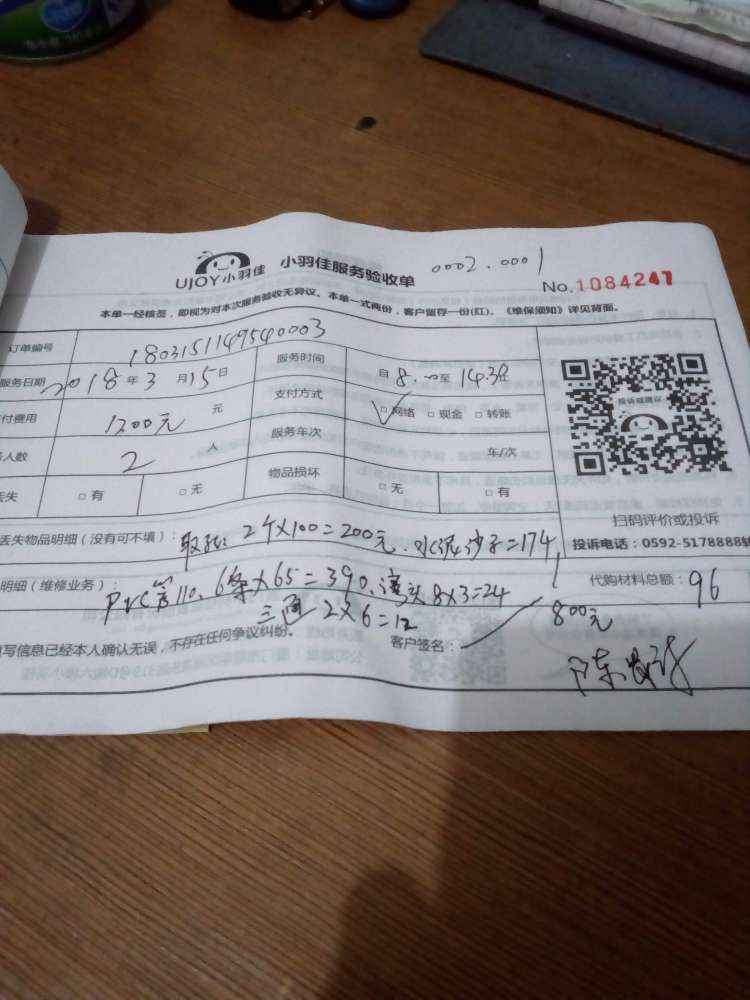 UJOY小羽佳 小羽佳服务验收单 0002.0001
No.1084247
本单一经核签，即视为对本次服务验收无异议。本单一式两份，客户留存一份(红)。《维保须知》详见背面。
订单编号 1803151149540003 服务时间 自8:00至14:30
服务日期 2018年3月15日 支付方式 □网络 □现金 □转账
付费用 1200元 元 服务车次 车/次
人数 2 人 物品损坏 □无 □有
丢失 □有 □无
投诉或建议
扫码评价或投诉
投诉电话：0592-5178888转
丢失物品明细（没有可不填）： 2个X100=200元.水泥沙子=174
明细（维修业务）： PVC管110、6条X65=390、 8X3=24 代购材料总额： 96
三通2X6=12 800元
写信息已经本人确认无误，不存在任何争议纠纷。 客户签名：